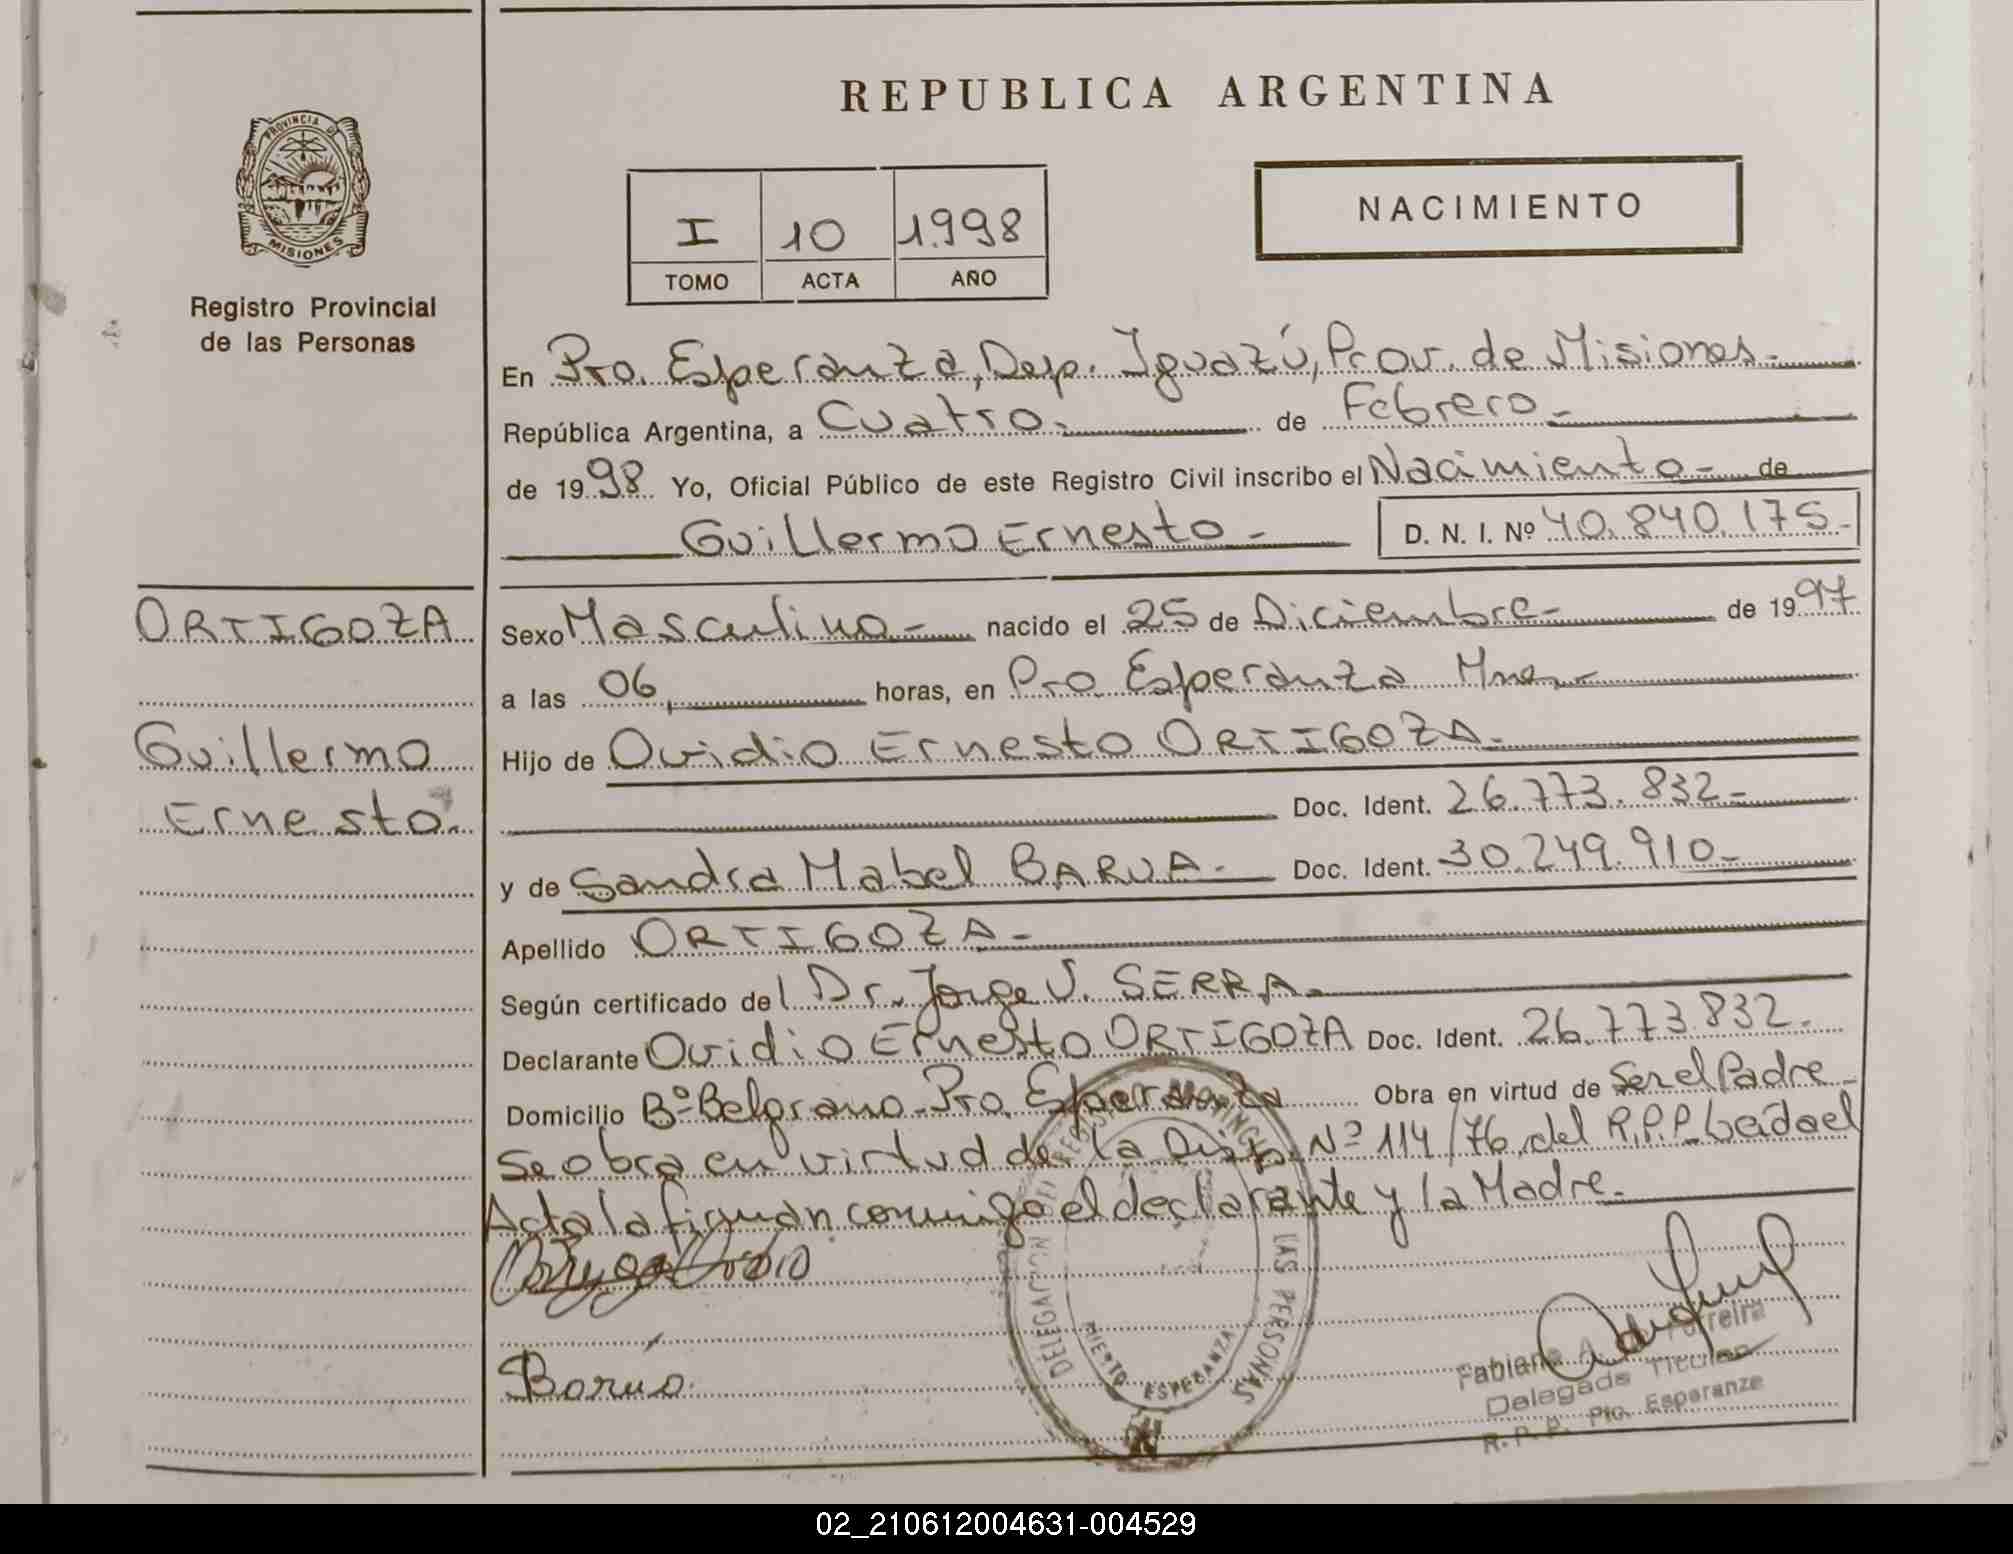 REPUBLICA ARGENTINA
PROVINCIA DE
MISIONES
Registro Provincial
de las Personas
I 10 1998
TOMO ACTA AÑO
NACIMIENTO
En Pto. Esperanza, Dep. Iguazú, Prov. de Misiones.-
República Argentina, a Cuatro.- de Febrero.-
de 1998. Yo, Oficial Público de este Registro Civil inscribo el Nacimiento - de
Guillermo Ernesto - D. N. I. Nº 40.840.175.-
ORTIGOZA
Guillermo
Ernesto.
Sexo Masculino - nacido el 25 de Diciembre - de 1997
a las 06, horas, en Pto Esperanza Mnes.-
Hijo de Ovidio Ernesto ORTIGOZA.-
Doc. Ident. 26.773.832.-
y de Sandra Mabel BARUA.- Doc. Ident. 30.249.910.-
Apellido ORTIGOZA.-
Según certificado del Dr. Jorge V. SERRA.-
Declarante Ovidio Ernesto ORTIGOZA Doc. Ident. 26.773.832.-
Domicilio Bº Belgrano - Pto. Esperanza Obra en virtud de Ser el Padre -
Se obra en virtud de la Disp. Nº 114/76, del R.P.P. Leída el
Acta la firman conmigo el declarante y la Madre.-
Barua.
DELEGACION DEL REGISTRO PROVINCIAL DE LAS PERSONAS
PUERTO ESPERANZA
Fabiana A. Ferreira
Delegada Titular
R. P. P. Pto. Esperanza
02_210612004631-004529